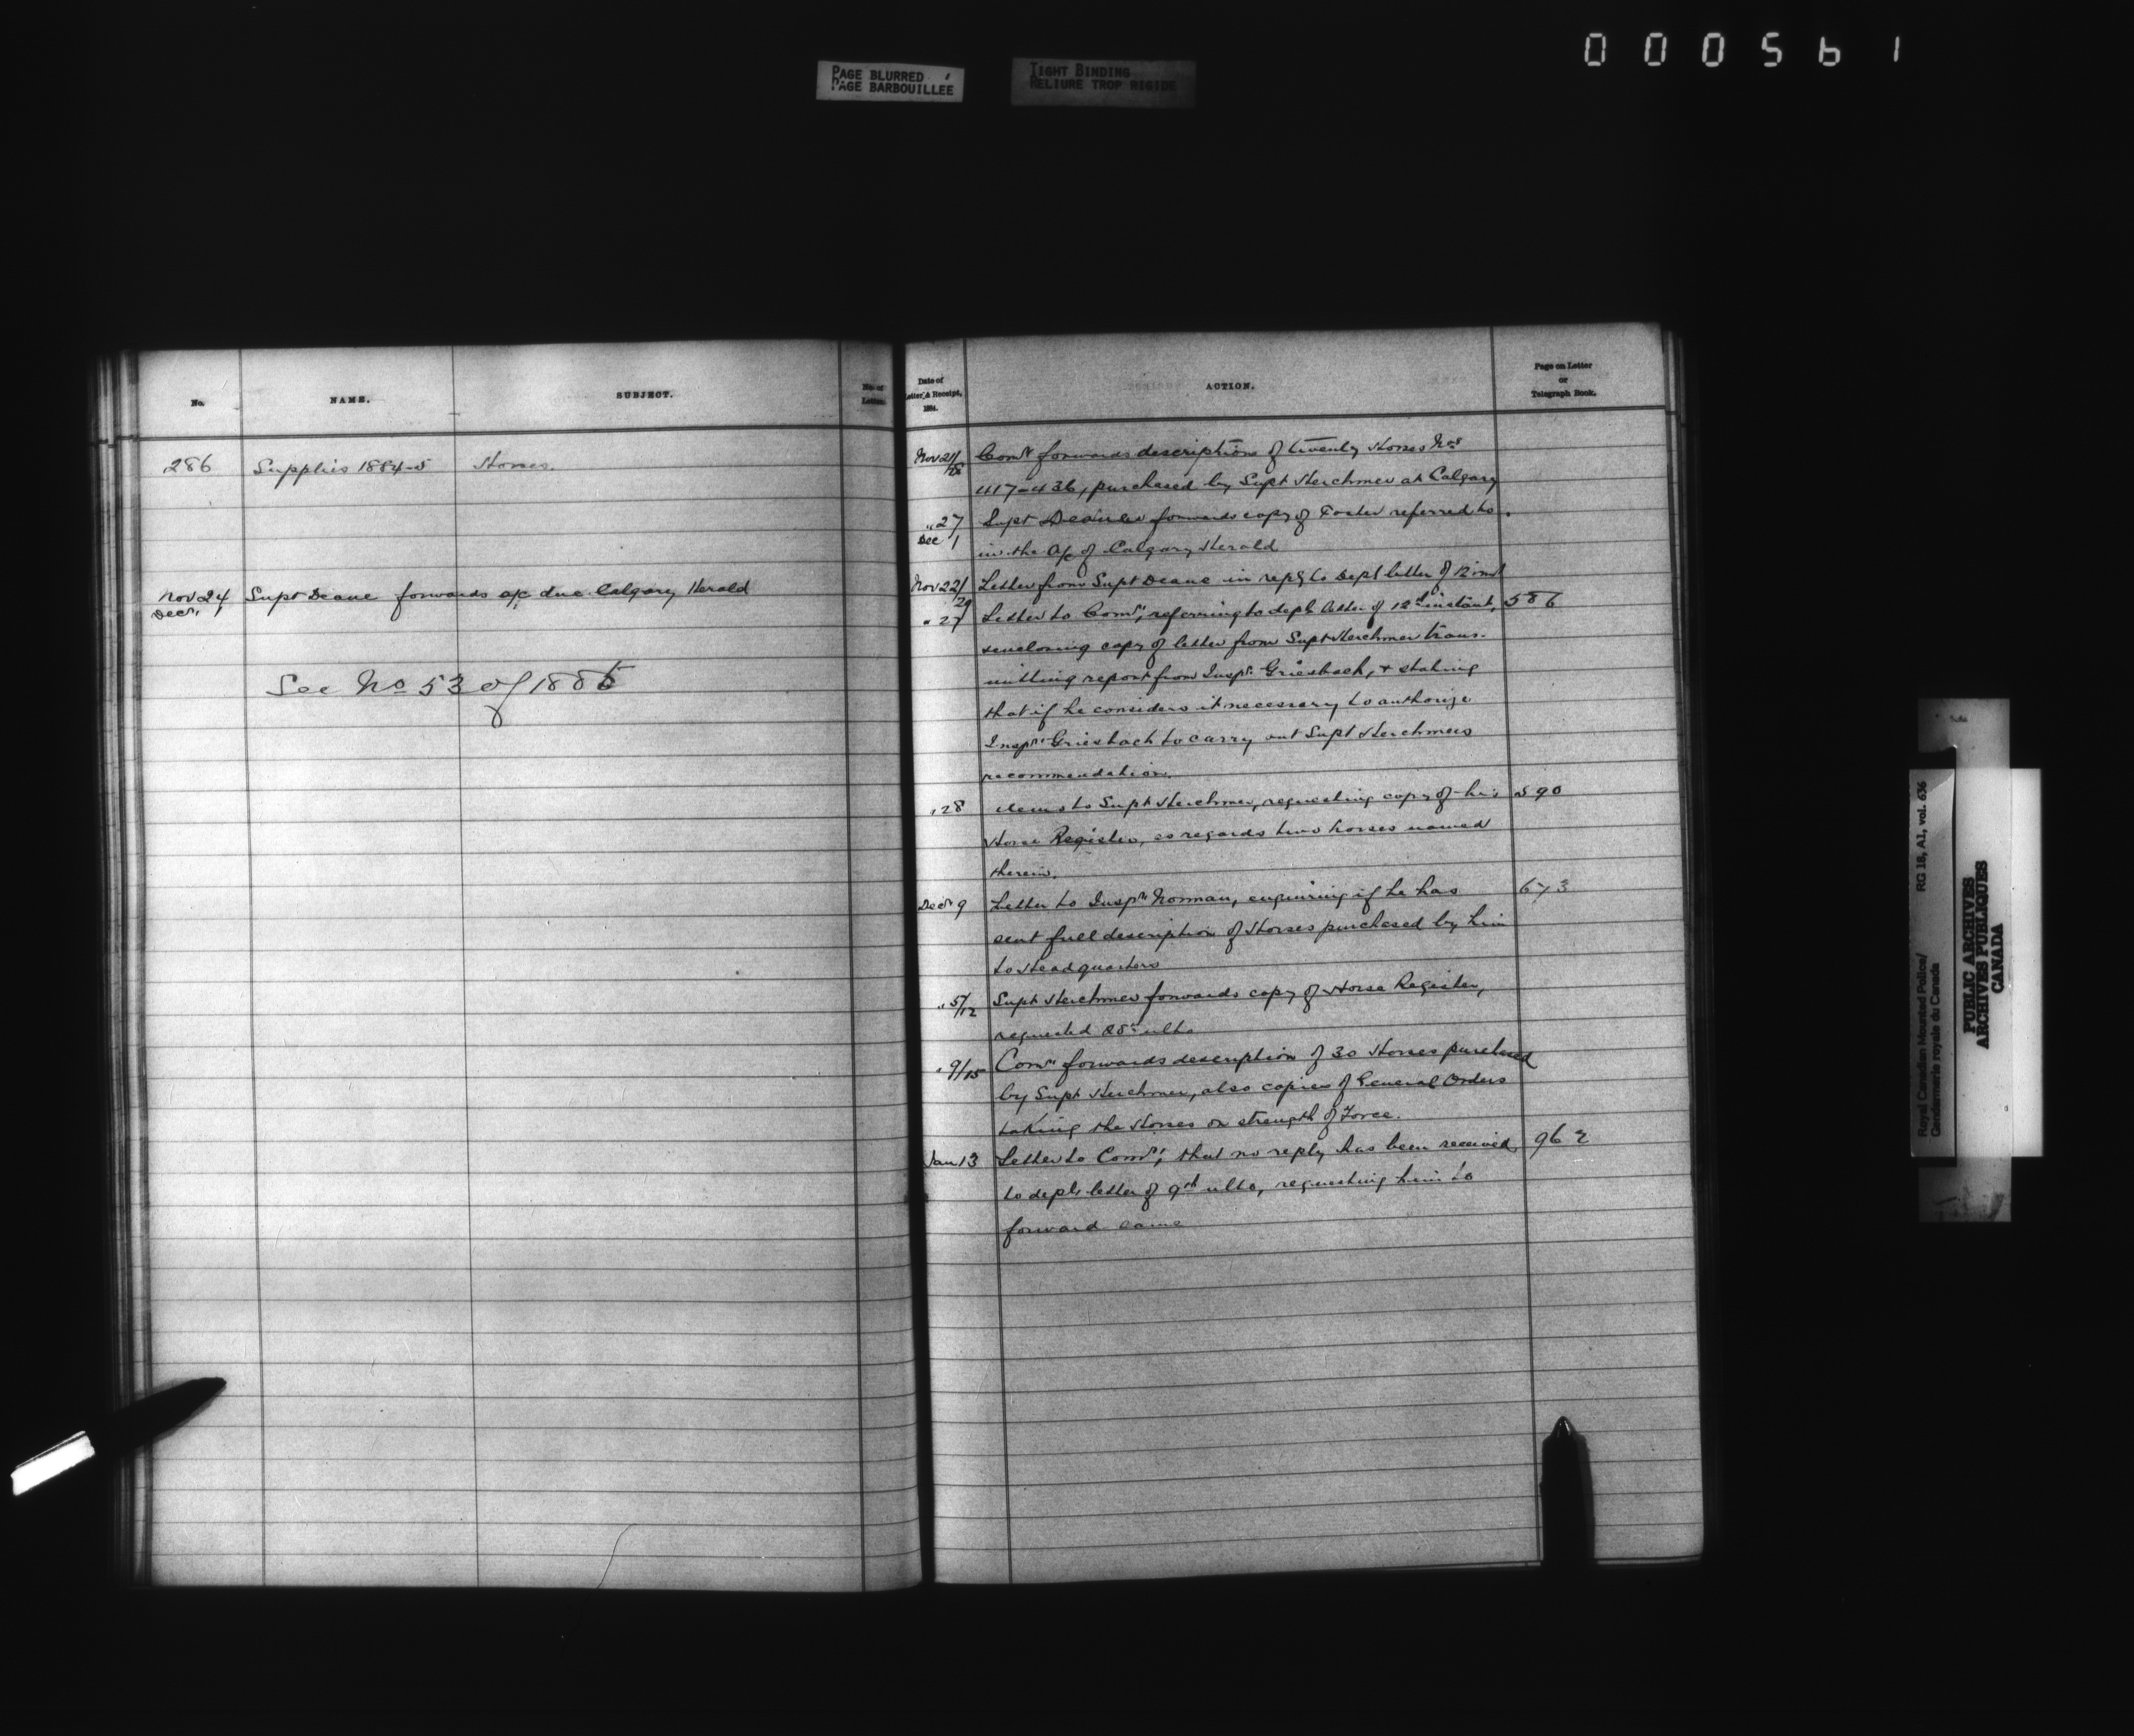 000561
PAGE BLURRED
PAGE BARBOUILLÉE
TIGHT BINDING
RELIURE TROP RIGIDE
No.
NAME.
SUBJECT.
No. of
Letters.
286 Supplies 1884-5 Horses.
Nov 24 Supt Deane forwards a/c due Calgary Herald
Decr 1
See No 53 of 1885
Date of
Letter, & Receipt,
1884.
ACTION.
Page on Letter
or
Telegraph Book.
Nov 21/28 Comr forwards descriptions of twenty Horses Nos
417-436, purchased by Supt Herchmer at Calgary
" 27 Supt forwards copy of Poster referred to
Dec 1 in the a/c of Calgary Herald
Nov 22/29 Letter from Supt Deane in reply to Dept letter of 12 inst
" 27 Letter to Comr, referring to dept letter of 12th instant, 586
enclosing copy of letter from Supt Herchmer trans-
mitting report from Inspr Griesbach, & stating
that if he considers it necessary to authorize
Inspr Griesbach to carry out Supt Herchmers
recommendation.
" 28 Memo to Supt Herchmer, requesting copy of his 590
Horse Register, as regards two horses named
therein.
Decr 9 Letter to Inspr Norman, enquiring if he has 673
sent full description of Horses purchased by him
to Headquarters
" 5/12 Supt Herchmer forwards copy of Horse Register,
requested 28th ulto
" 9/15 Comr forwards description of 30 Horses purchased
by Supt Herchmer, also copies of General Orders
taking the Horses on strength of Force.
Jan 13 Letter to Comr, that no reply has been received 962
to dept letter of 9th ulto, requesting him to
forward same
Royal Canadian Mounted Police/ RG 18, A1, vol. 636
Gendarmerie royale du Canada
PUBLIC ARCHIVES
ARCHIVES PUBLIQUES
CANADA